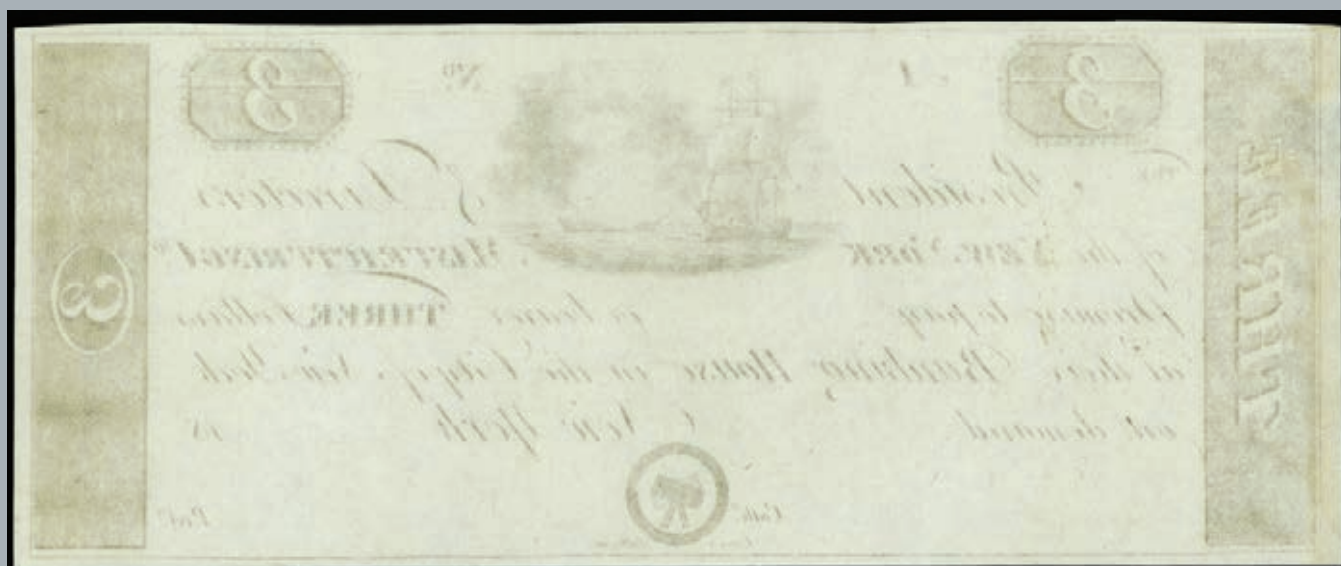 3 A Nº 3
The President & Directors
of the NEW-YORK MANUFACTURING Cº
promise to pay or bearer THREE Dollars
at their Banking House in the City of New York
on demand New York 18
Cashʳ. Presᵗ.
THREE
3